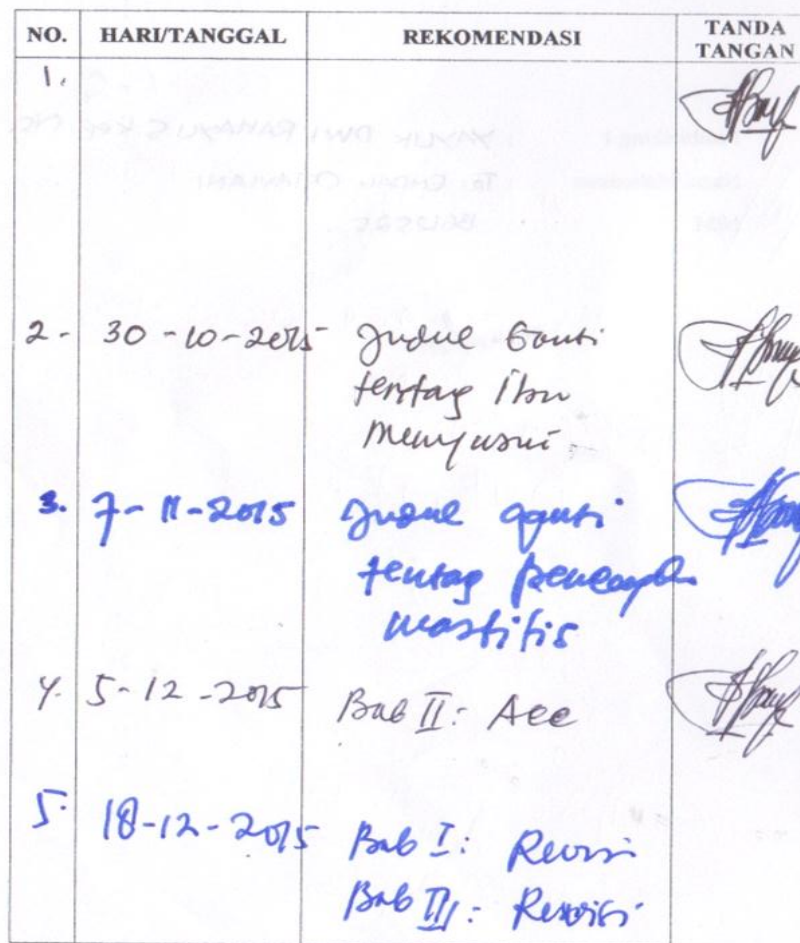 NO. HARI/TANGGAL REKOMENDASI TANDA TANGAN
1.
2. 30-10-2015 Judul Ganti
tentag ibu
menyusui
3. 7-11-2015 Judul ganti
tentag
mastitis
4. 5-12-2015 Bab II: Acc
5. 18-12-2015 Bab I: Revisi
Bab III: Revisi